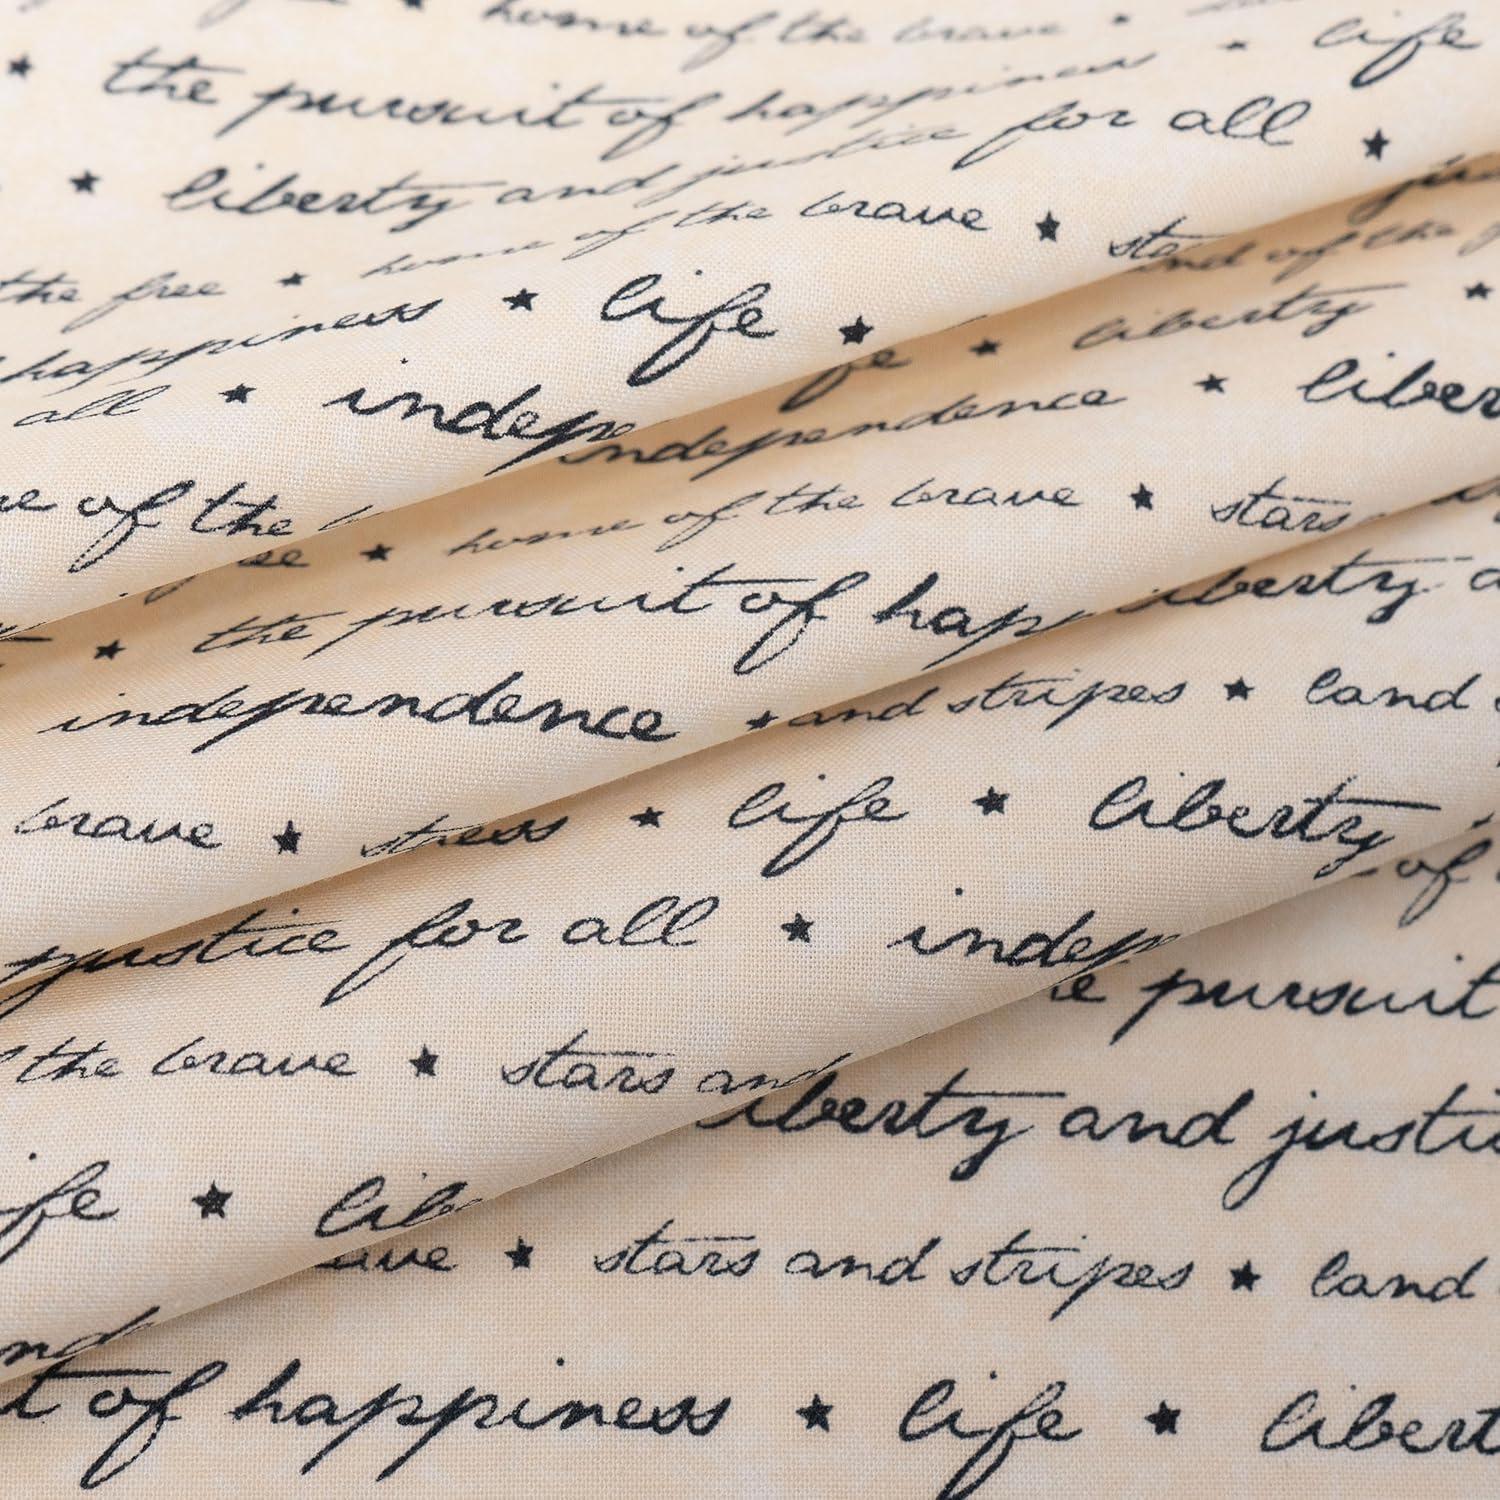 home of the brave ★
★ the pursuit of happiness ★ life
★ liberty and justice for all ★
the free ★ home of the brave ★
happiness ★ life ★
and of the
★ liberty ★
all ★ indepe
independence ★ liber
e of the
★ home of the brave ★ stars
★ the pursuit of happ
liberty
independence ★ and stripes ★ land
brave ★ ess ★ life ★ liberty
of
justice for all ★ indep
pursuit
the brave ★ stars an
liberty and justic
ife ★ lib
ave ★ stars and stripes ★ land
nd
t of happiness ★ life ★ libert